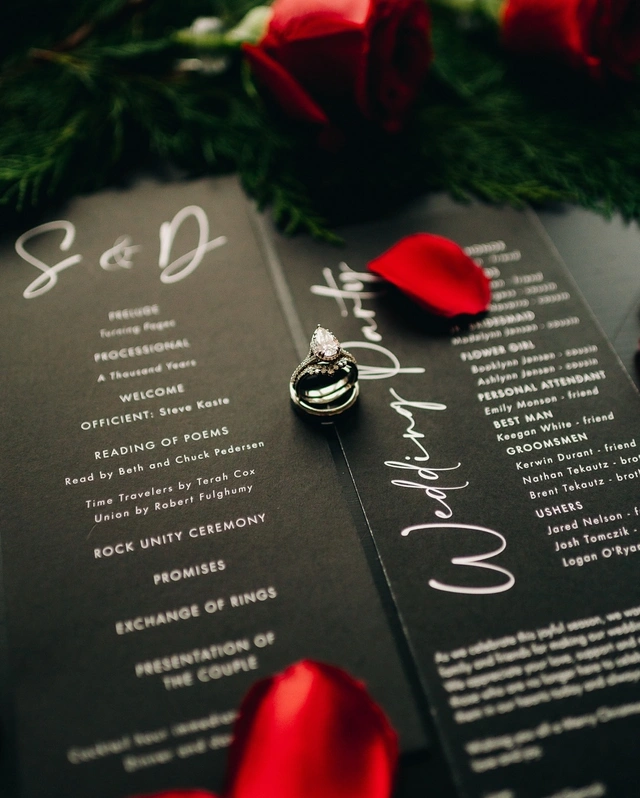 S & D
PRELUDE
Turning Pages
PROCESSIONAL
A Thousand Years
WELCOME
OFFICIENT: Steve Kaste
READING OF POEMS
Read by Beth and Chuck Pedersen
Time Travelers by Terah Cox
Union by Robert Fulghumy
ROCK UNITY CEREMONY
PROMISES
EXCHANGE OF RINGS
PRESENTATION OF
THE COUPLE
Cocktail hour
Dinner and
Wedding Party
Madelynn Jensen - cousin
FLOWER GIRL
Booklynn Jensen - cousin
Ashlynn Jensen - cousin
PERSONAL ATTENDANT
Emily Monson - friend
BEST MAN
Keegan White - friend
GROOMSMEN
Kerwin Durant - friend
Nathan Tekautz - brot
Brent Tekautz - brot
USHERS
Jared Nelson - f
Josh Tomczik -
Logan O'Rya
As we celebrate this joyful season, we wa
family and friends for making our weddin
We appreciate your love, support and
those who are no longer here to celeb
them in our hearts today and
Wishing you all a Merry Christm